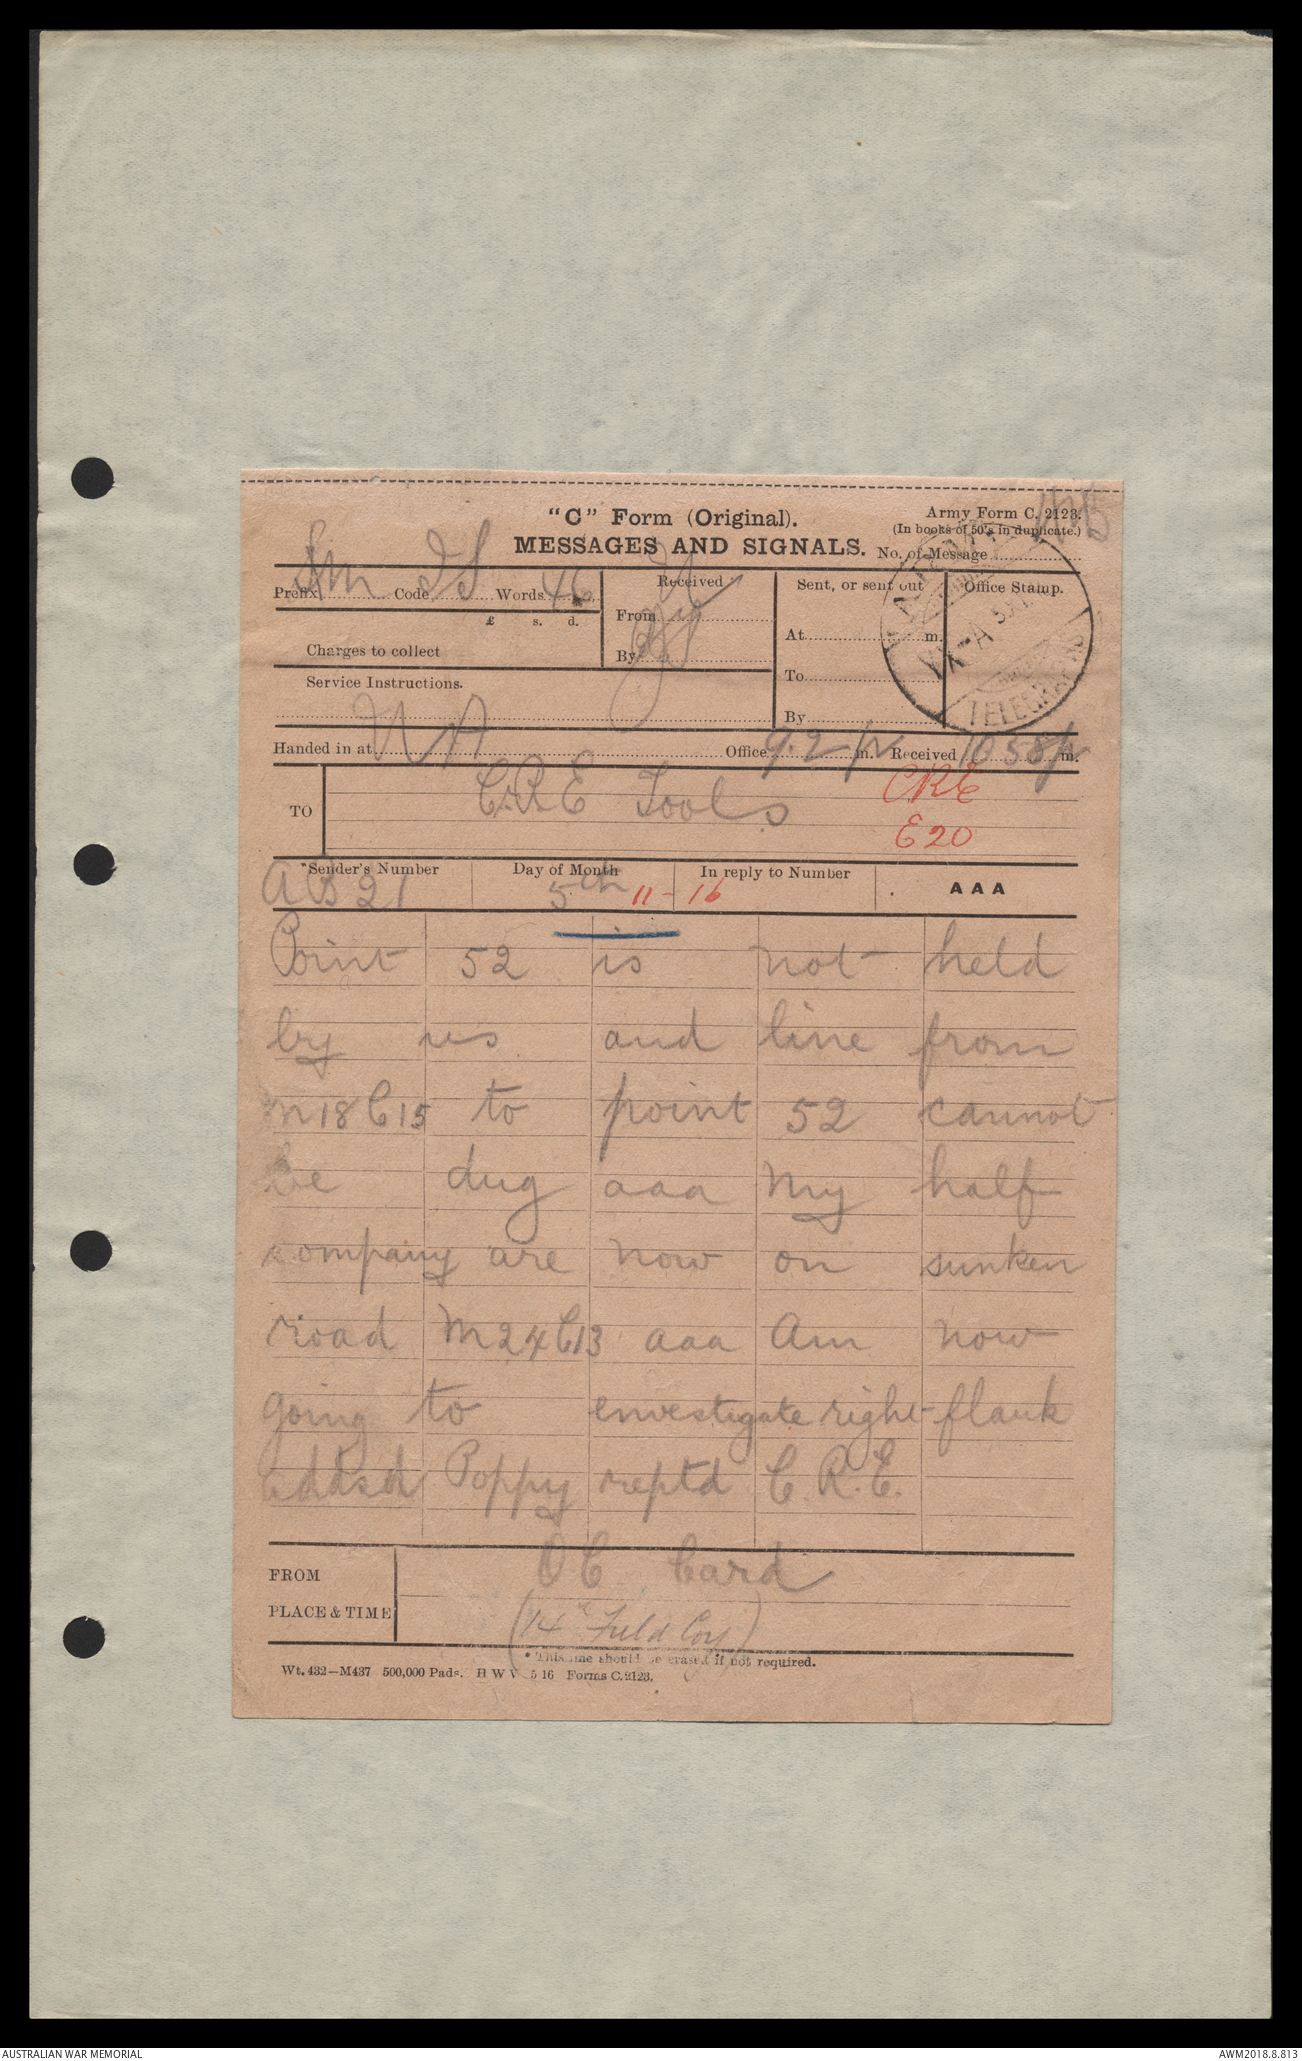 "C" Form (Original).
Army Form C. 2123.
(In books of 50's in duplicate.)
MESSAGES AND SIGNALS.
No. of Message
Prefix Sm Code IS Words 46
£ s. d.
Charges to collect
Received
From
By
Sent, or sent out
At m.
To
By
Office Stamp.
TELEGRAPHS
Service Instructions.
Handed in at Office 9.2 p m. Received 10 58 p m.
TO C.R.E Tools
CRE
E20
*Sender's Number Day of Month In reply to Number AAA
AB 21 5th 11-16
Point 52 is not held
by us and line from
M18C15 to point 52 cannot
be dug aaa My half
company are now on sunken
road M24C13 aaa Am now
going to envestigate right flank
addsd Poppy reptd C.R.E.
FROM OC Card
PLACE & TIME
(14th Field Coy)
* This line should be erased if not required.
Wt. 432—M437 500,000 Pads. H W V 5 16 Forms C.2123.
AUSTRALIAN WAR MEMORIAL
AWM2018.8.813